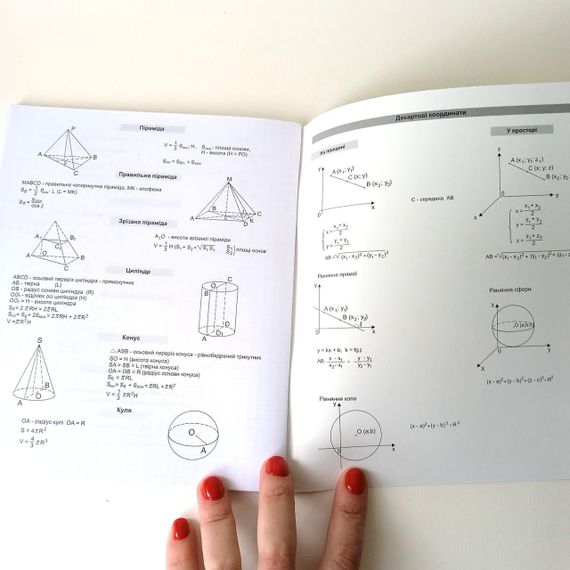 Піраміда
P
A
B
C
V = 1/3 Sосн. H , Sосн. - площа основи,
H - висота (H = PO)
Sпп. = Sбп. + Sосн
Правильна піраміда
MABCD - правильна чотирикутна піраміда, MK - апофема
M
A
B
C
D
K
Зрізана піраміда
A₁O - висота зрізаної піраміди
S₂ } площі основ
A₁
B₁
A
B
C
Циліндр
ABCD - осьовий переріз циліндра - прямокутник
AB - твірна (L)
OB - радіус основи циліндра (R)
OO₁ - відрізок осі циліндра (H)
OO₁ = H - висота циліндра
Sб = 2πRH = 2πRL
Sпп = Sб + 2Sосн = 2πRH + 2πR²
V = πR²H
B
O
C
A
O₁
D
Конус
△ ASB - осьовий переріз конуса - рівнобедрений трикутник
SO = H (висота конуса)
SA = SB = L (твірна конуса)
OA = OB = R (радіус основи конуса)
Sб = πRL
Sпп = Sб + Sосн = πRL + πR²
V = 1/3 πR²H
S
A
O
B
Куля
OA - радіус кулі OA = R
S = 4πR²
V = 4/3 πR³
O
A
Декартові координати
На площині
У просторі
y
A (x₁; y₁)
C (x; y)
B (x₂; y₂)
0
x
C - середина AB
z
A (x₁, y₁, z₁)
C (x; y; z)
B (x₂; y₂
0
x
y
x = x₁ + x₂ / 2
y = y₁ + y₂ / 2
x = x₁ + x₂ / 2
y = y₁ + y₂ / 2
z = z₁ + z₂ / 2
AB = √(x₁ - x₂)² + (y₁ - y₂)²
AB = √(x₁ - x₂)² + (y₁ - y₂)² + (z₁ -
Рівняння прямої
y
A (x₁; y₁)
B (x₂; y₂)
0
x
y = kx + b;
AB: x - x₁ / x₂ - x₁ = y - y₁ / y₂ - y₁
Рівняння сфери
z
O (a;b;
X
y
(x - a)² + (y - b)² + (z - c)² = R²
Рівняння кола
y
O (a;b)
0
x
(x - a)² + (y - b)² = R²